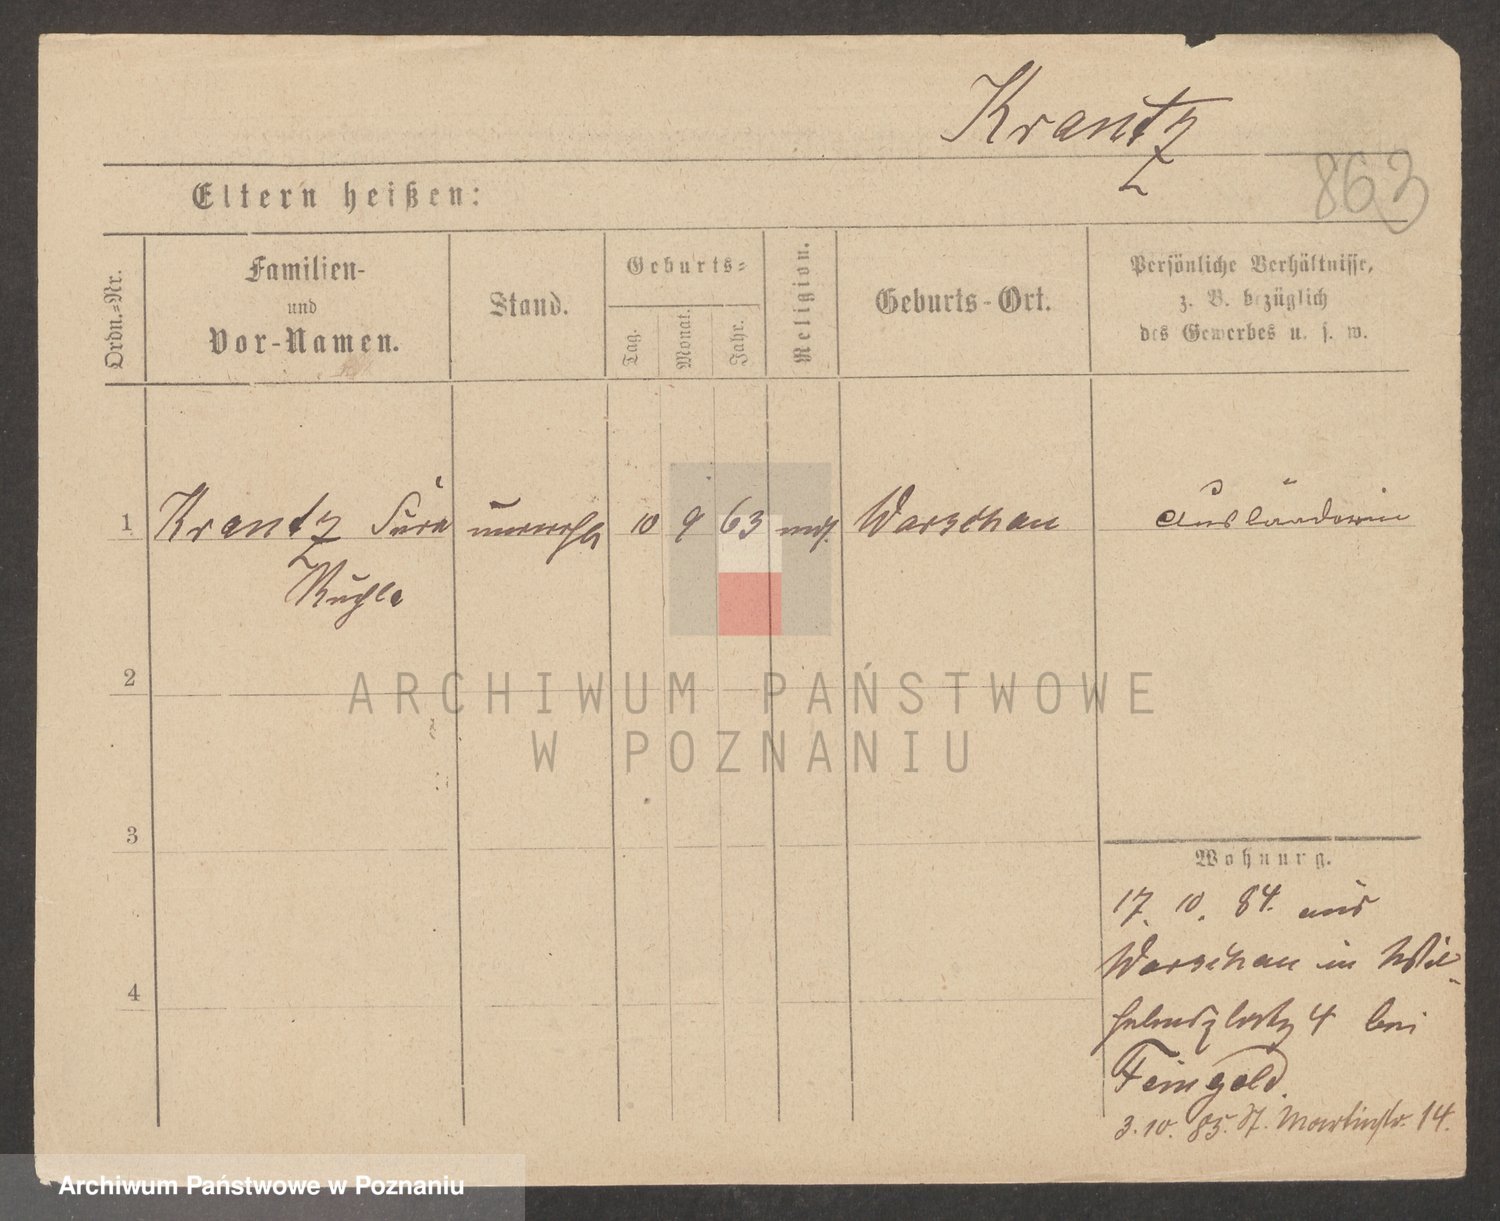 Krantz
863
Eltern heißen:
Ordn.-Nr.
Familien-
und
Vor-Namen.
Stand.
Geburts-
Tag.
Monat.
Jahr.
Religion.
Geburts-Ort.
Persönliche Verhältnisse,
z. B. bezüglich
des Gewerbes u. s. w.
1 Krantz Sura unverehl. 10 9 63 mos. Warschau Ausländerin
Ruchla
2
ARCHIWUM PAŃSTWOWE
W POZNANIU
3
Wohnung.
17. 10. 84. aus
Warschau in Wil-
helmsplatz 4 bei
Feingold.
3. 10. 85. St. Martinstr. 14.
4
Archiwum Państwowe w Poznaniu